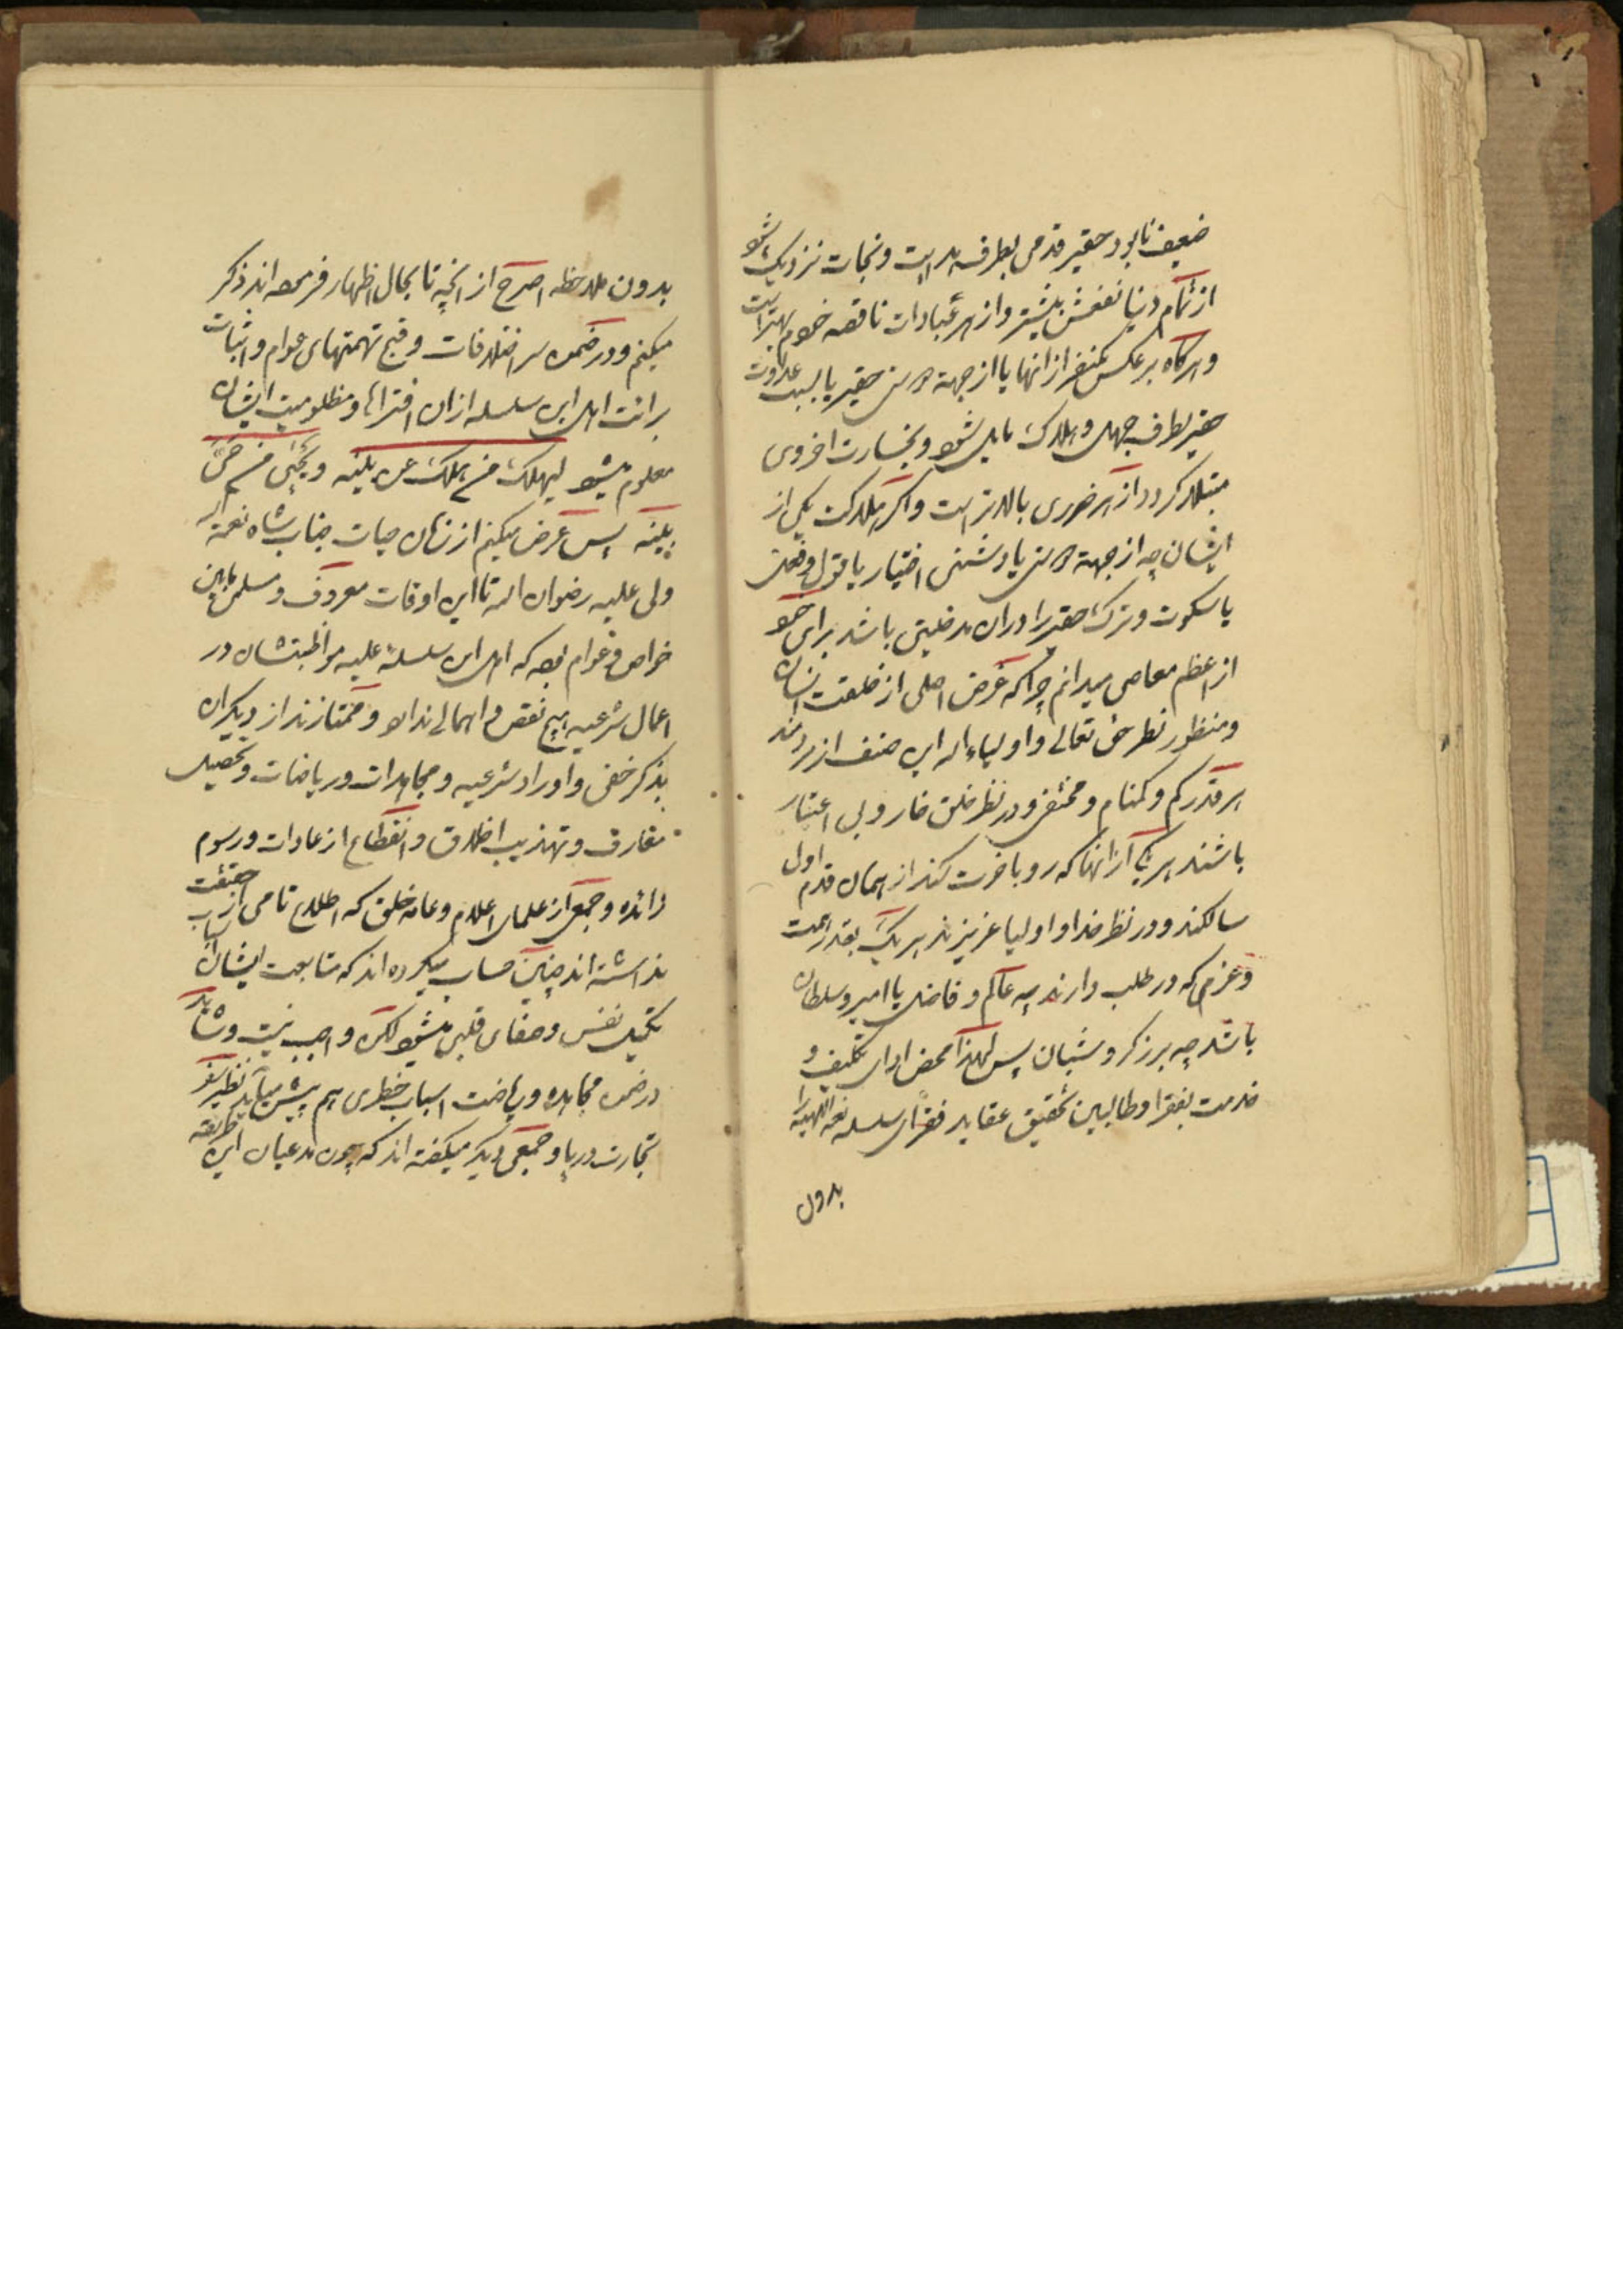 ضعیف نابود حقیر قدمی بطرف هدایت و نجات نزدیک شود
از تمام دنیا نفعش بیشتر و از هر عبادات ناقصه خودم بهتر است
و هرگاه برعکس یکنفر از آنها یا از جهة دوستی حقیر یا بسبب عداوت
حقیر بطرف جهل و هلاکت مایل شود و بخسارت اخروی
مبتلا گردد از هر ضرری بالاتر است و اگر هلاکت یکی از
ایشان چه از جهة دوستی یا دشمنی اختیار یا قول و فعل
یا سکوت و ترک حقیر را در آن مدخلیتی باشد برای خود
از اعظم معاصی میدانم چرا که غرض اصلی از خلقت انسان
و منظور نظر حق تعالی و اولیاء اله این صنف از
هر قدر کم و گمنام و مختفی و در نظر خلق خار و بی اعتبار
باشند هر یک از آنها که رو بآخرت کند از همان قدم اول
سالکند و در نظر خدا و اولیا عزیزند هر یک بقدر همت
و عزم که در طلب دارند چه عالم و فاضل یا امیر و سلطان
باشد چه برزگر و شبان پس لهذا محض ادای تکلیف و
خدمت بفقرا و طالبین تحقیق عقاید فقرای سلسله نعمة اللهیه را
بدون
بدون ملاحظه اصرح از آنچه تا بحال اظهار فرموده اند ذکر
میکنم و در ضمن سر اختلافات و قبح تهمتهای عوام و اثبات
برائت اهل این سلسله از آن افتراها و مظلومیت ایشان
معلوم میشود لیهلک من هلک عن بینه و یحیی من حی
عن بینه پس عرض میکنم از زمان حیات جناب شاه نعمة اله
ولی علیه رضوان اله تا این اوقات معروف و مسلم مابین
خواص و عوام بوده که اهل این سلسلهٔ علیه مواظبتشان در
اعمال شرعیه هیچ نقص و اهمالی ندارد و ممتازند از دیگران
بذکر خفی و اوراد شرعیه و مجاهدات و ریاضات و تحصیل
معارف و تهذیب اخلاق و انقطاع از عادات و رسوم
زائده و جمعی از علمای اعلام و عامه خلق که اطلاع تامی از حقیقت
نداشته اند چنین حساب میکرده اند که متابعت ایشان اسباب
تکمیل نفس و صفای قلب میشود لکن واجب نیست و شاید
در ضمن مجاهده و ریاضت اسباب خطری هم پیش بیاید نظیر سفر
تجارت دریا و جمعی دیگر میگفته اند که چون مدعیان این طریقه